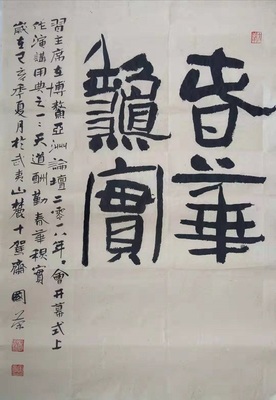 春華
龝實
習主席在博鰲亞洲論壇二零一八年會開幕式上
作演講用典之一：天道酬勤春華龝實
歲在己亥季夏月於武夷山麓十駕齋 國